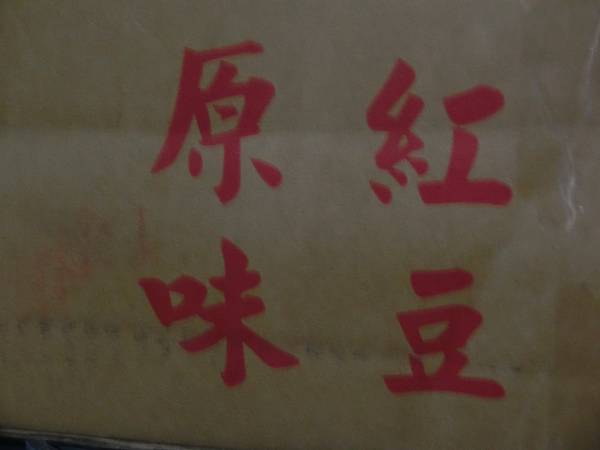 紅豆
原味